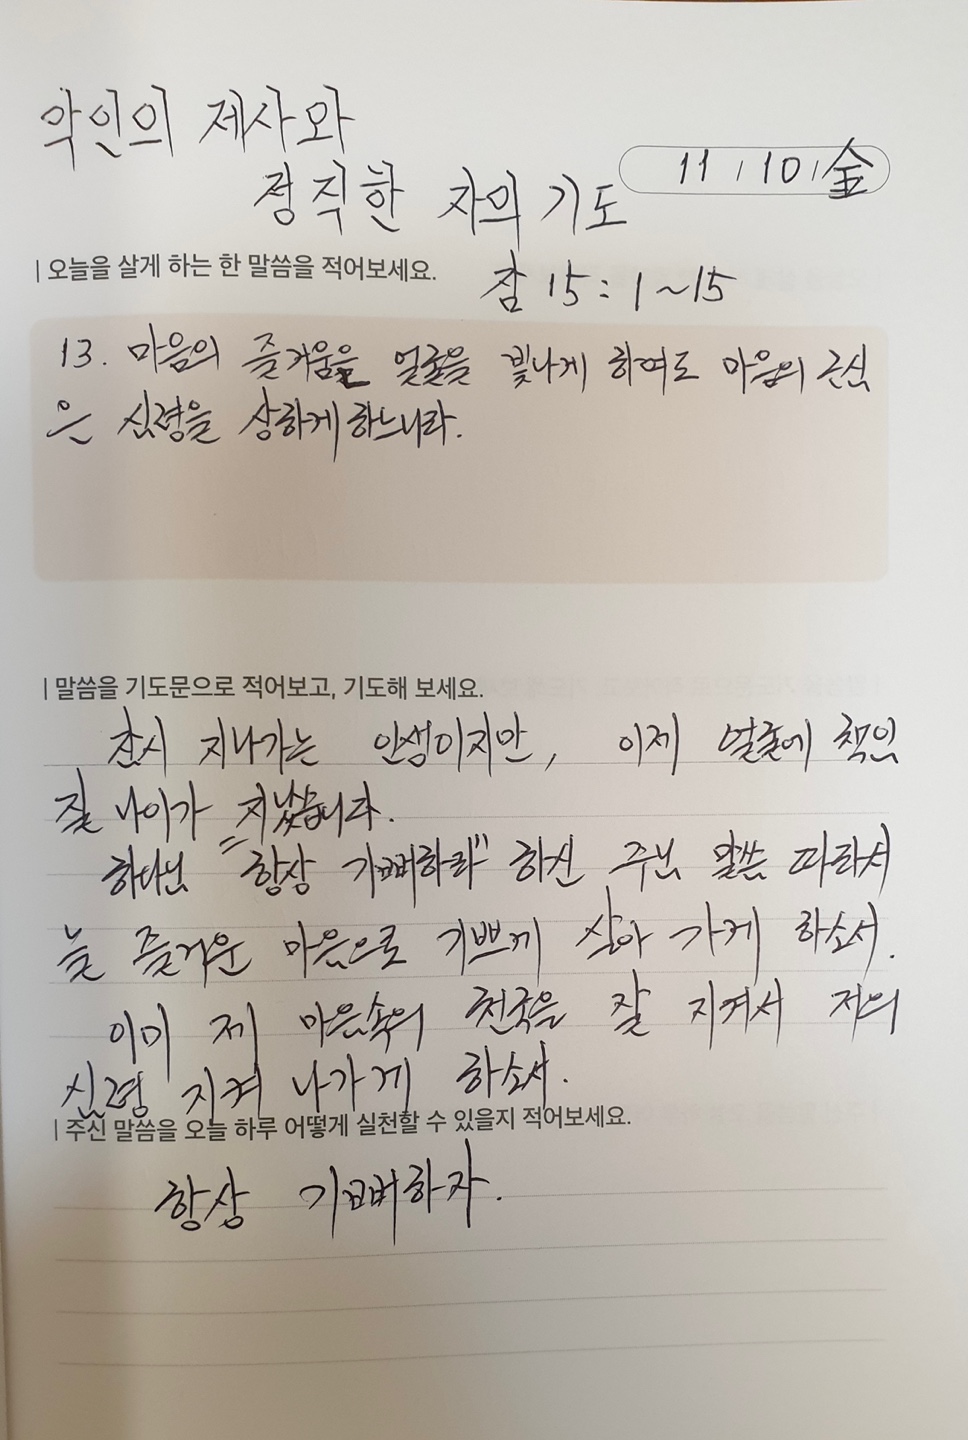 악인의 제사와
정직한 자의 기도
11/10/金
| 오늘을 살게 하는 한 말씀을 적어보세요.
잠 15:1~15
13. 마음의 즐거움은 얼굴을 빛나게 하여도 마음의 근심
은 심령을 상하게 하느니라.
| 말씀을 기도문으로 적어보고, 기도해 보세요.
잠시 지나가는 인생이지만, 이제 얼굴에 책임
질 나이가 지났습니다.
하나님 "항상 기뻐하라" 하신 주님 말씀 따라서
늘 즐거운 마음으로 기쁘게 살아 가게 하소서.
이미 제 마음속의 천국을 잘 지켜서 저의
심령 지켜 나가게 하소서.
| 주신 말씀을 오늘 하루 어떻게 실천할 수 있을지 적어보세요.
항상 기뻐하자.